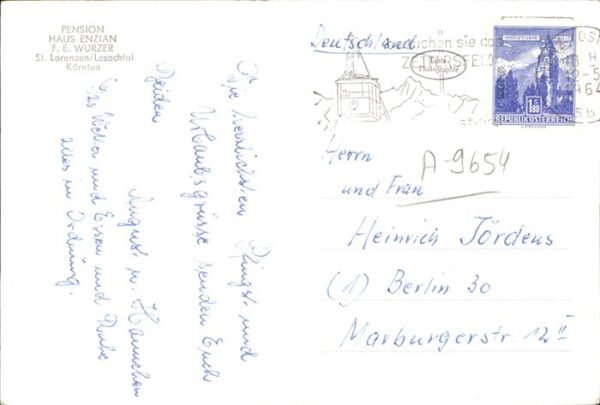 PENSION
HAUS ENZIAN
F. E. WURZER
St. Lorenzen/Lesachtal
Kärnten
Die herzlichsten Pfingst und
Urlaubsgrüsse senden Euch
Beiden
August u. Hannchen
Das Wetter und Essen und Ruhe
alles in Ordnung.
Deutschland
sie das
Echte
Photographie
1964
S 1.80
REPUBLIK ÖSTERREICH
A-9654
Herrn
und Frau
Heinrich Jördens
(1) Berlin 30
Marburgerstr. 12 II